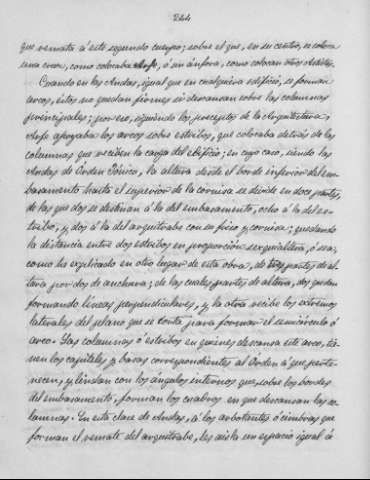 244
que remata á este segundo cuerpo; sobre el que, en su centro, se coloca
una cruz, como colocaba Arfe, ó un ánfora, como colocan otros Artistas.
Cuando en las Andas, igual que en cualquiera edificio, se forman
arcos, éstos no quedan firmes si descansan sobre las columnas
principales; por eso, siguiendo los preceptos de la Arquitectura,
Arfe apoyaba los arcos sobre estribos, que colocaba detrás de las
columnas que reciben la carga del edificio; en cuyo caso, siendo las
Andas de Orden Jónico, la altura desde el borde inferior del em-
basamento hasta el superior de la cornisa se divide en doce partes,
de las que dos se destinan á la del embasamento, ocho á la del es-
tribo, y dos á la del arquitrabe con su friso y cornisa; quedando
la distancia entre dos estribos en proporción sexquialtera, ó sea,
como ha explicado en otro lugar de esta obra, de tres partes de al-
tura por dos de anchura; de las cuales partes de altura, dos quedan
formando líneas perpendiculares, y la otra recibe los extremos
laterales del plano que se corta para formar el semicírculo ó
arco. Las columnas ó estribos en quienes descansa este arco, tie-
nen los capiteles y basas correspondientes al Orden á que perte-
necen, y lindan con los ángulos internos que, sobre los bordes
del embasamento, forman los cuadros en que descansan las co-
lumnas. En esta clase de Andas, á los arbotantes ó cimbras que
forman el remate del arquitrabe, les asista un espacio igual á